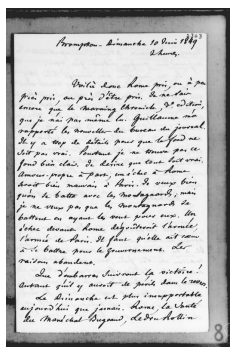 Brompton. Dimanche 10 Juin 1849
2 heures.
Voilà donc Rome pris, ou à peu
près pris, ou près d'être pris. Je ne sais
encore que le Morning Chronicle, 3e édition,
que je n'ai pas même lu. Guillaume m'a
rapporté les nouvelles du bureau du journal.
Il y a trop de détails pour que le fond ne
soit pas vrai. Pourtant je ne trouve pas ce
fond bien clair. Je désire que tout soit vrai.
Amour propre à part, un échec à Rome
serait bien mauvais à Paris. Je veux bien
qu'on se batte avec les montagnards, mais
je ne veux pas que les montagnards se
battent en ayant le vent pour eux. Un
échec devant Rome
l'armée de Paris. Il faut qu'elle ait
à se battre pour le gouvernement. Les
raisons abondent.
Que d'embarras suivront la victoire!
autant qu'il y aurait de périls dans le revers.
Le Dimanche est plus insupportable
aujourd'hui que jamais. Rome, la santé
du Maréchal Bugeaud, Ledru Rollin
8